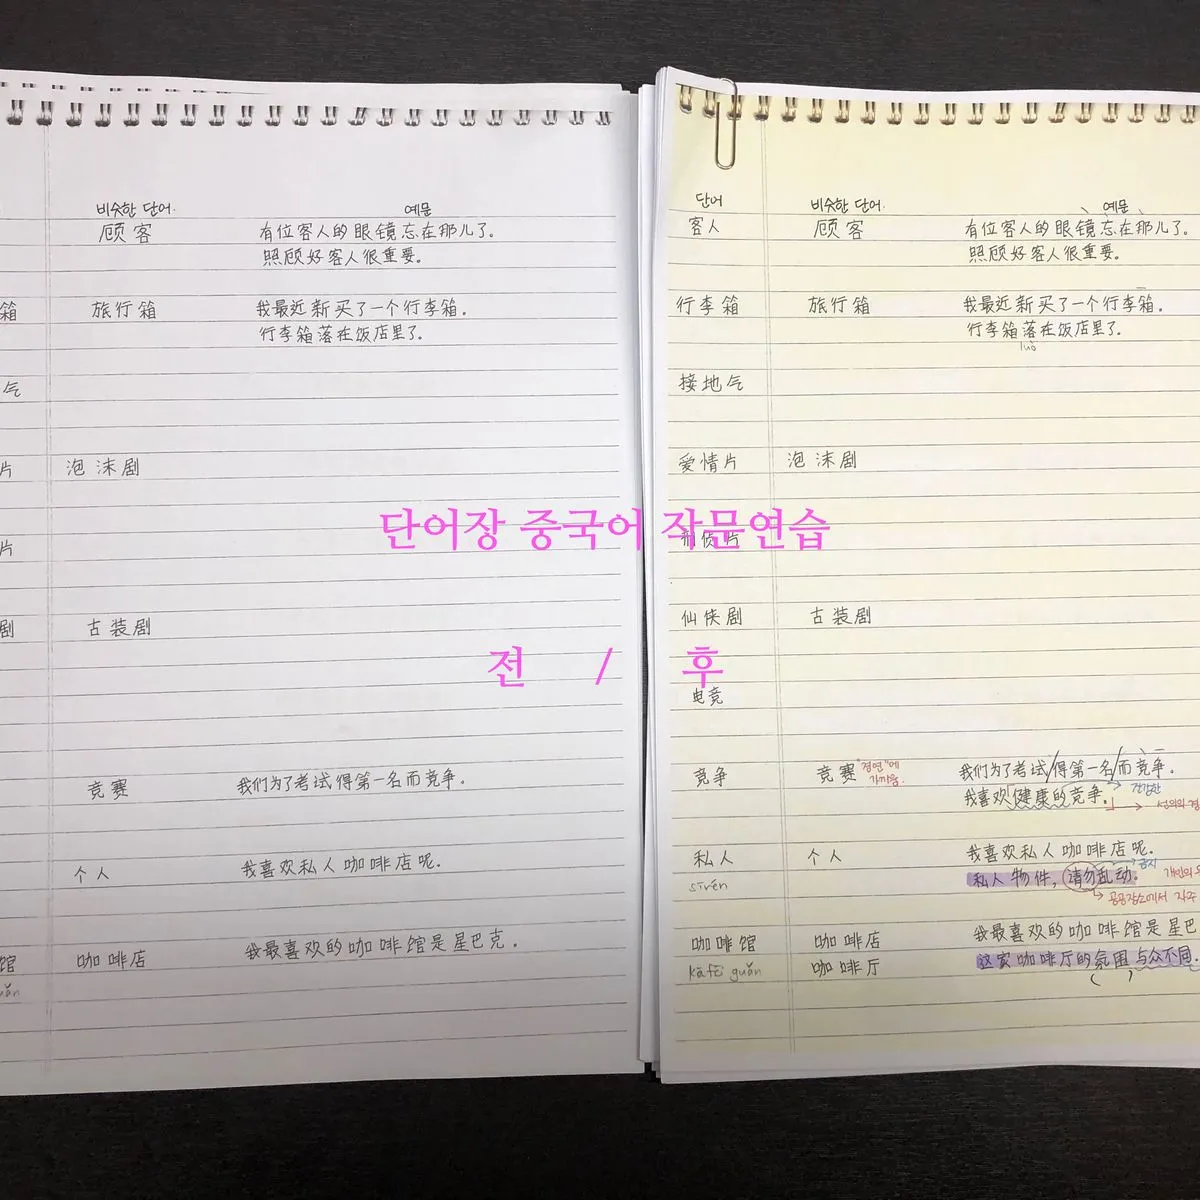 비슷한 단어. 예문
顾客 有位客人的眼镜忘在那儿了。
照顾好客人很重要。
箱 旅行箱 我最近新买了一个行李箱.
行李箱落在饭店里了.
气
片 泡沫剧
片
剧 古装剧
竞赛 我们为了考试得第一名而竞争.
个人 我喜欢私人咖啡店呢.
馆 咖啡店 我最喜欢的咖啡馆是星巴克.
단어장 중국어 작문연습
전 / 후
단어 비슷한 단어. 예문
客人 顾客 有位客人的眼镜忘在那儿了。
照顾好客人很重要。
行李箱 旅行箱 我最近新买了一个行李箱.
行李箱落在饭店里了.
luò
接地气
爱情片 泡沫剧
刑侦片
仙侠剧 古装剧
电竞
竞争 竞赛 "경연"에 가까움. 我们为了考试/得第一名/而竞争.
我喜欢健康的竞争. 건강한
선의의 경
私人 个人 我喜欢私人咖啡店呢.
sīrén 私人物件, 请勿乱动. 금지
공공장소에서 자주
咖啡馆 咖啡店 我最喜欢的咖啡馆是星巴
kāfēi guǎn 咖啡厅 这家咖啡厅的氛围与众不同.